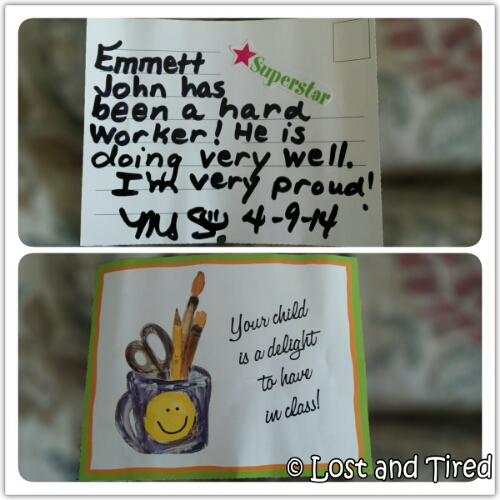 Emmett
Superstar
John has
been a hard
worker! He is
doing very well.
I'm very proud!
4-9-14
Your child
is a delight
to have
in class!
© Lost and Tired